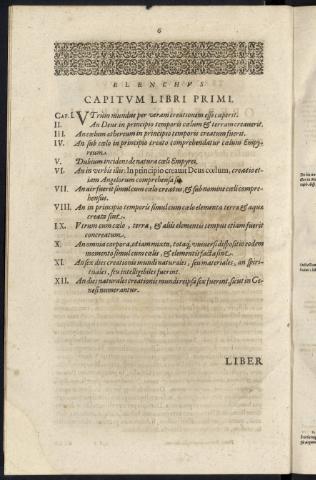 6
ELENCHVS
CAPITVM LIBRI PRIMI.
CAP. I. VTrùm mundus per veram creationem esse cœperit.
II. An Deus in principio temporis cœlum & terram creauerit.
III. An cœlum æthereum in principio temporis creatum fuerit.
IV. An sub cœlo in principio creato comprehendatur cœlum Empy-
reum.
V. Dubium incidens de natura cœli Empyrei.
VI. An in verbis illis: In principio creauit Deus cœlum, creatio et-
iam Angelorum comprehensa sit.
VII. An aër fuerit simul cum cœlo creatus, & sub nomine cœli compre-
hensus.
VIII. An in principio temporis simul cum cœlo elementa terra & aqua
creata sint.
IX. Vtrum cum cœlo, terra, & aliis elementis tempus etiam fuerit
concreatum.
X. An omnia corpora, etiam mixta, totaq́, vniuersi dispositio eodem
momento simul cum cœlis, & elementis facta sint.
XI. An sex dies creationis mundi naturales, seu materiales, an spiri-
tuales, seu intelligibiles fuerint.
XII. An dies naturales creationis mundi reipsa sex fuerint, sicut in Ge-
nesi numerantur.
LIBER